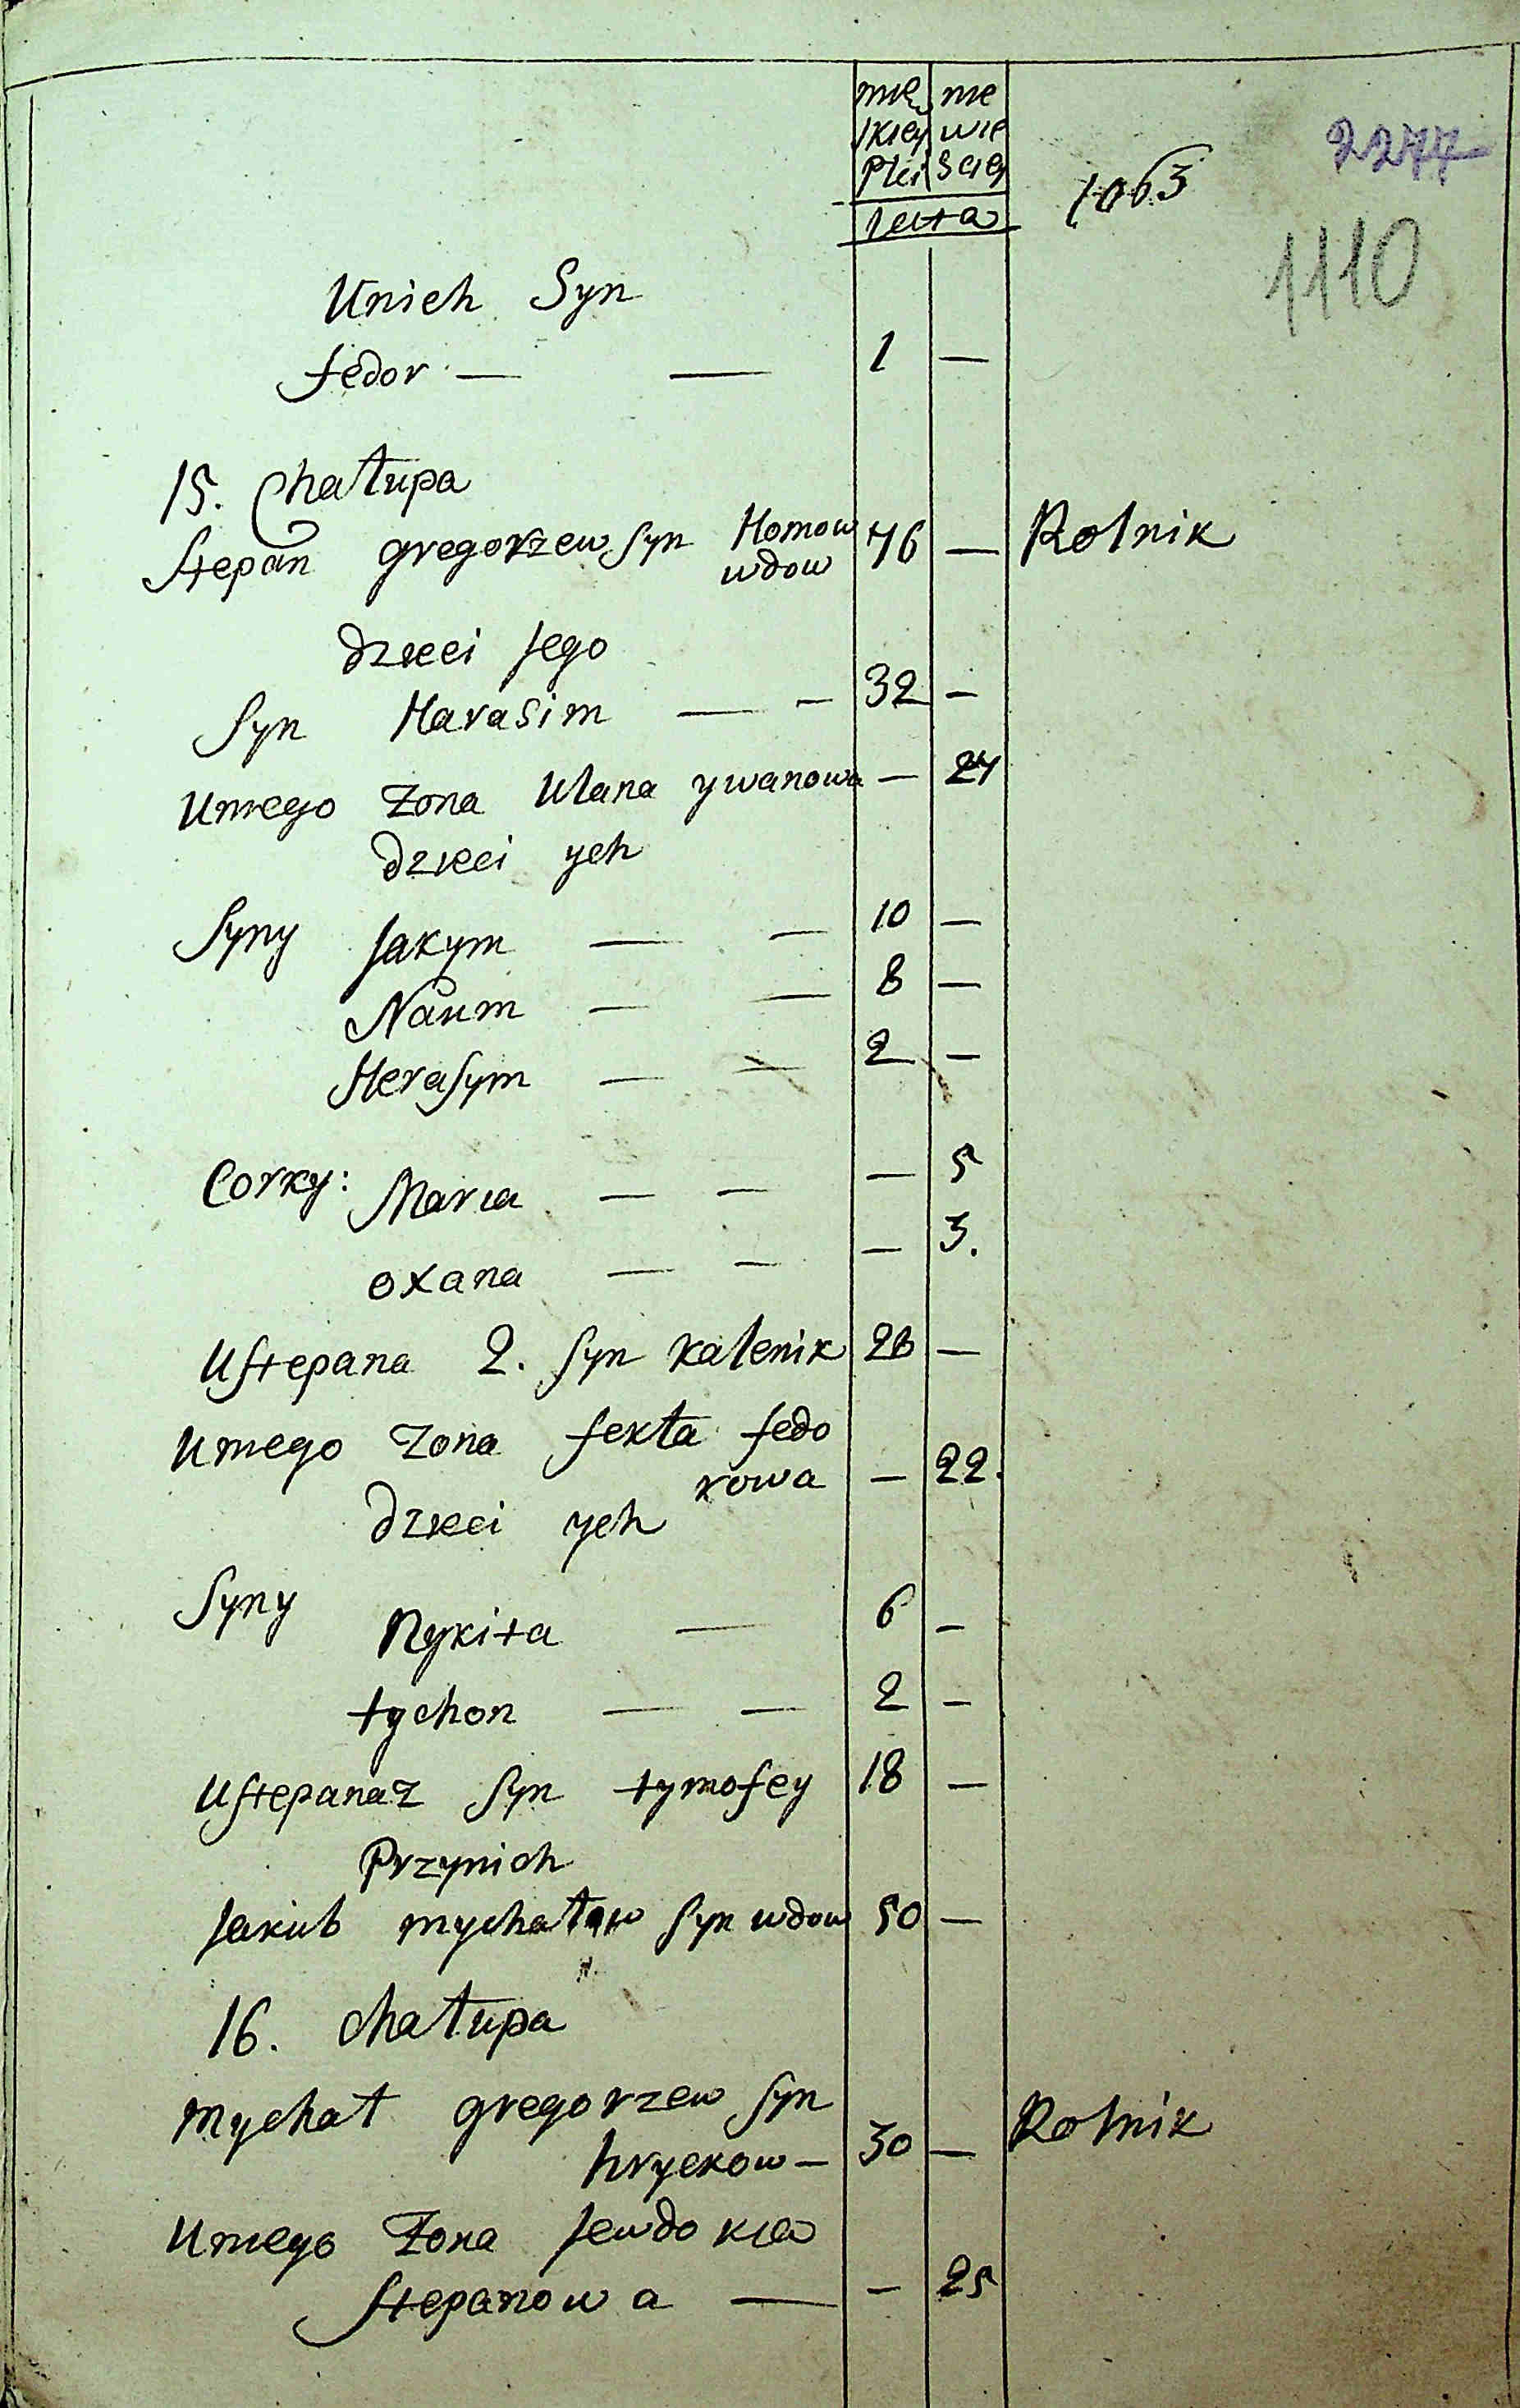 męskiey płci niewieściey
lata
1063
2277
1110
Unich Syn
fedor — — 1 —
15. Chałupa
Stepan gregorzew syn Homow wdow 76 — Rolnik
dzieci jego
Syn Harasim — — 32 —
Uniego Zona Ulana ywanowa — 27
dzieci ych
Syny Jakym — — 10 —
Naum — — 8 —
Herasym — — 2 —
Corky: Maria — — — 5
oxana — — — 3.
Ustepana 2. syn kalenik 28 —
Uniego Zona fekła fedo
rowa — 22.
dzieci ych
Syny Nykita — 6 —
tychon — — 2 —
Ustepana 2 syn tymofey 18 —
Przynich
Jakub mychałow syn wdow 50 —
16. chałupa
Mychał gregorzew syn
hryckow — 30 — Rolnik
Uniego Zona Jewdokia
Stepanowa — — 25